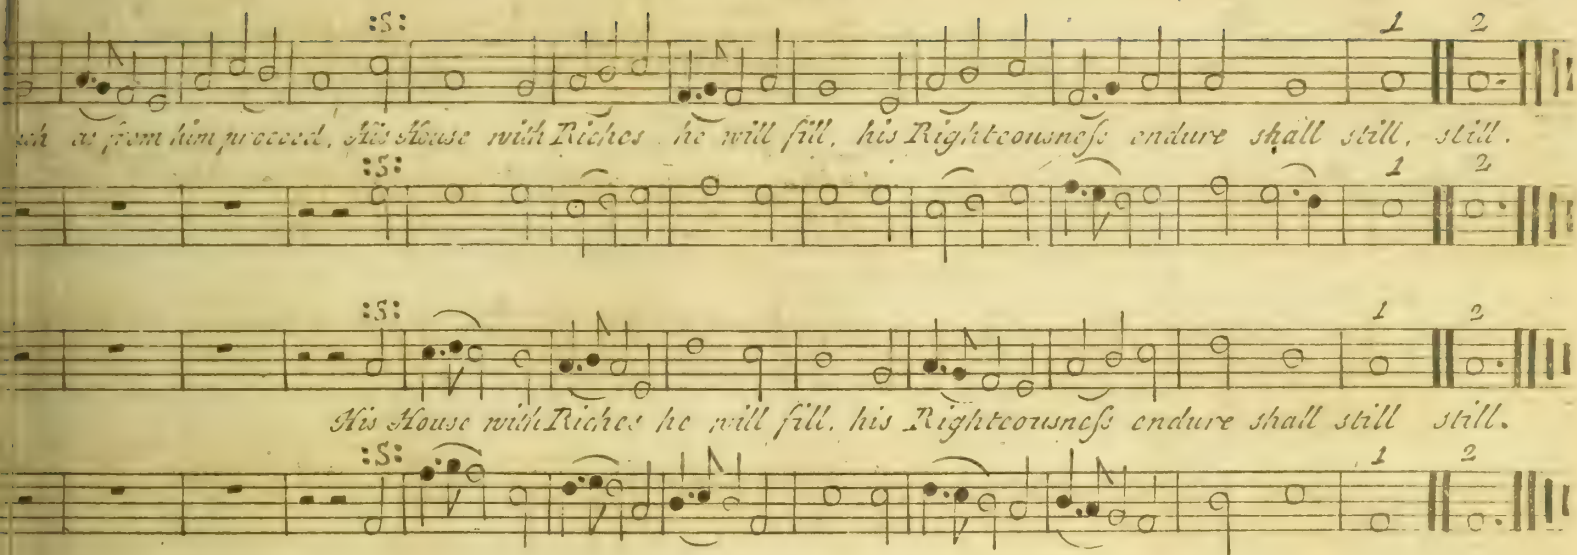 :S: 1 2
as from him proceed, His House with Riches he will fill, his Righteousneſs endure shall still, still.
:S: 1 2
:S: 1 2
His House with Riches he will fill. his Righteousneſs endure shall still still.
:S: 1 2